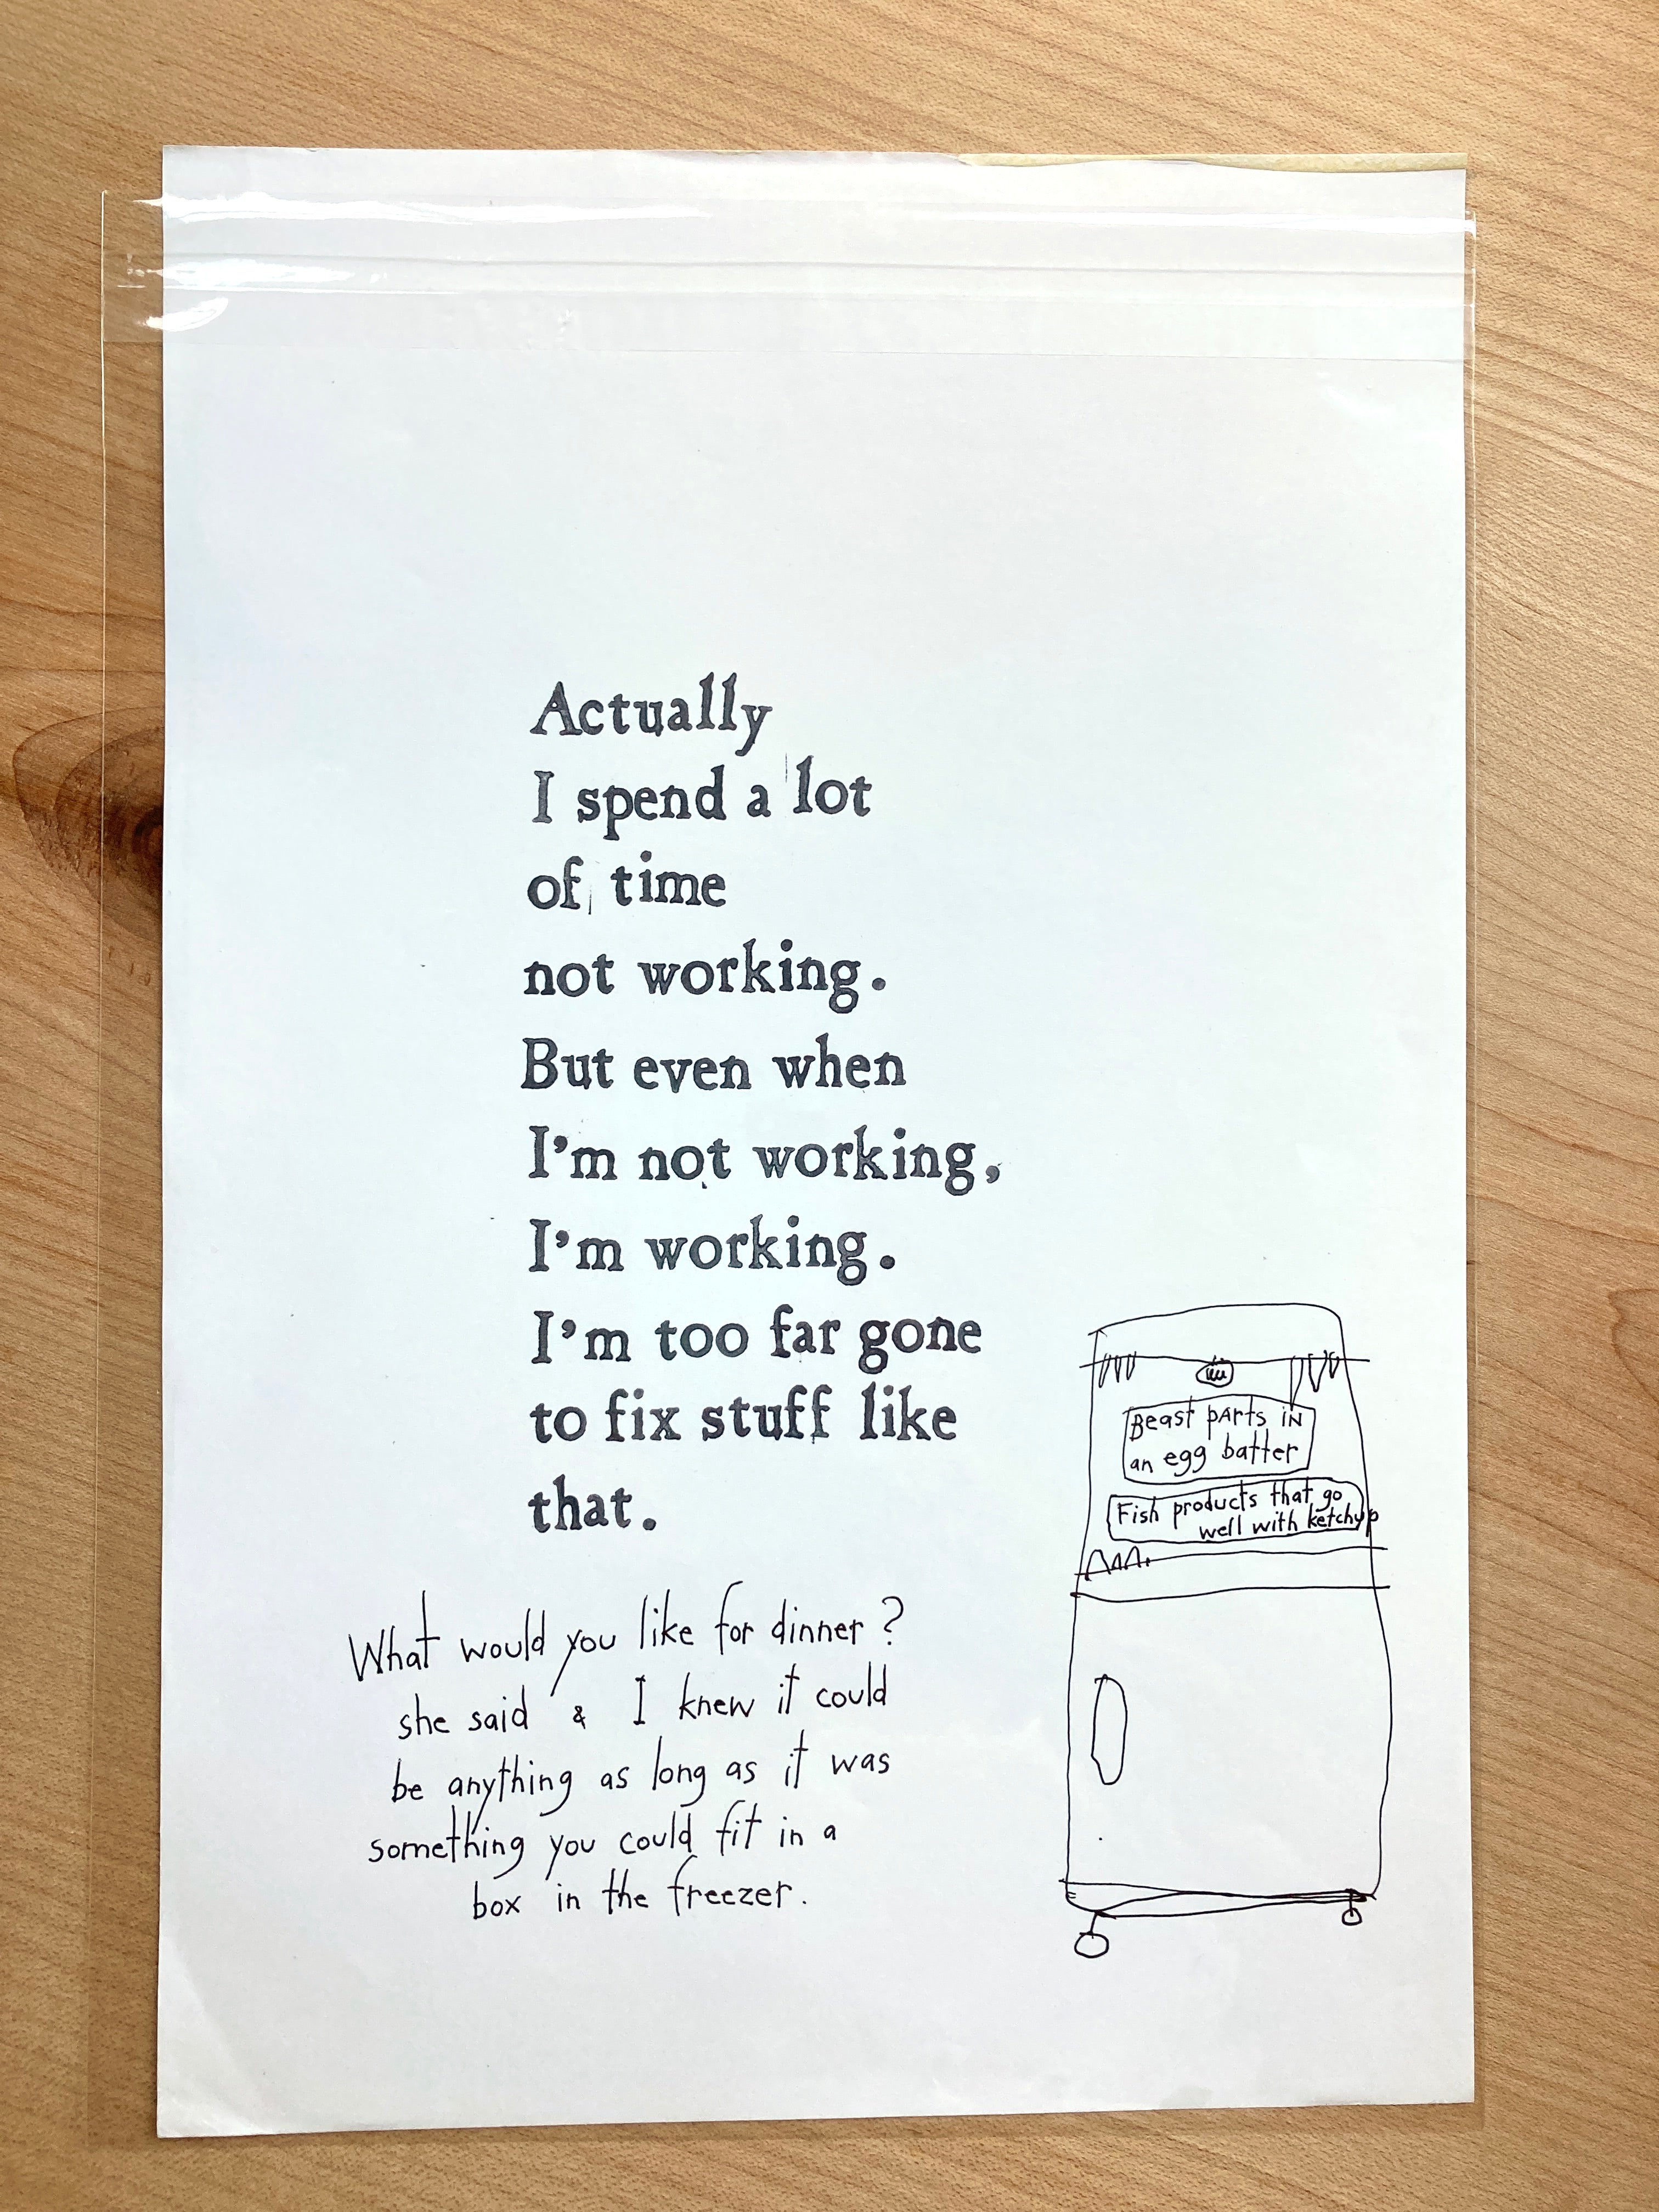 Actually
I spend a lot
of time
not working.
But even when
I'm not working,
I'm working.
I'm too far gone
to fix stuff like
that.
What would you like for dinner?
she said & I knew it could
be anything as long as it was
something you could fit in a
box in the freezer.
Beast parts in
an egg batter
Fish products that go
well with ketchup